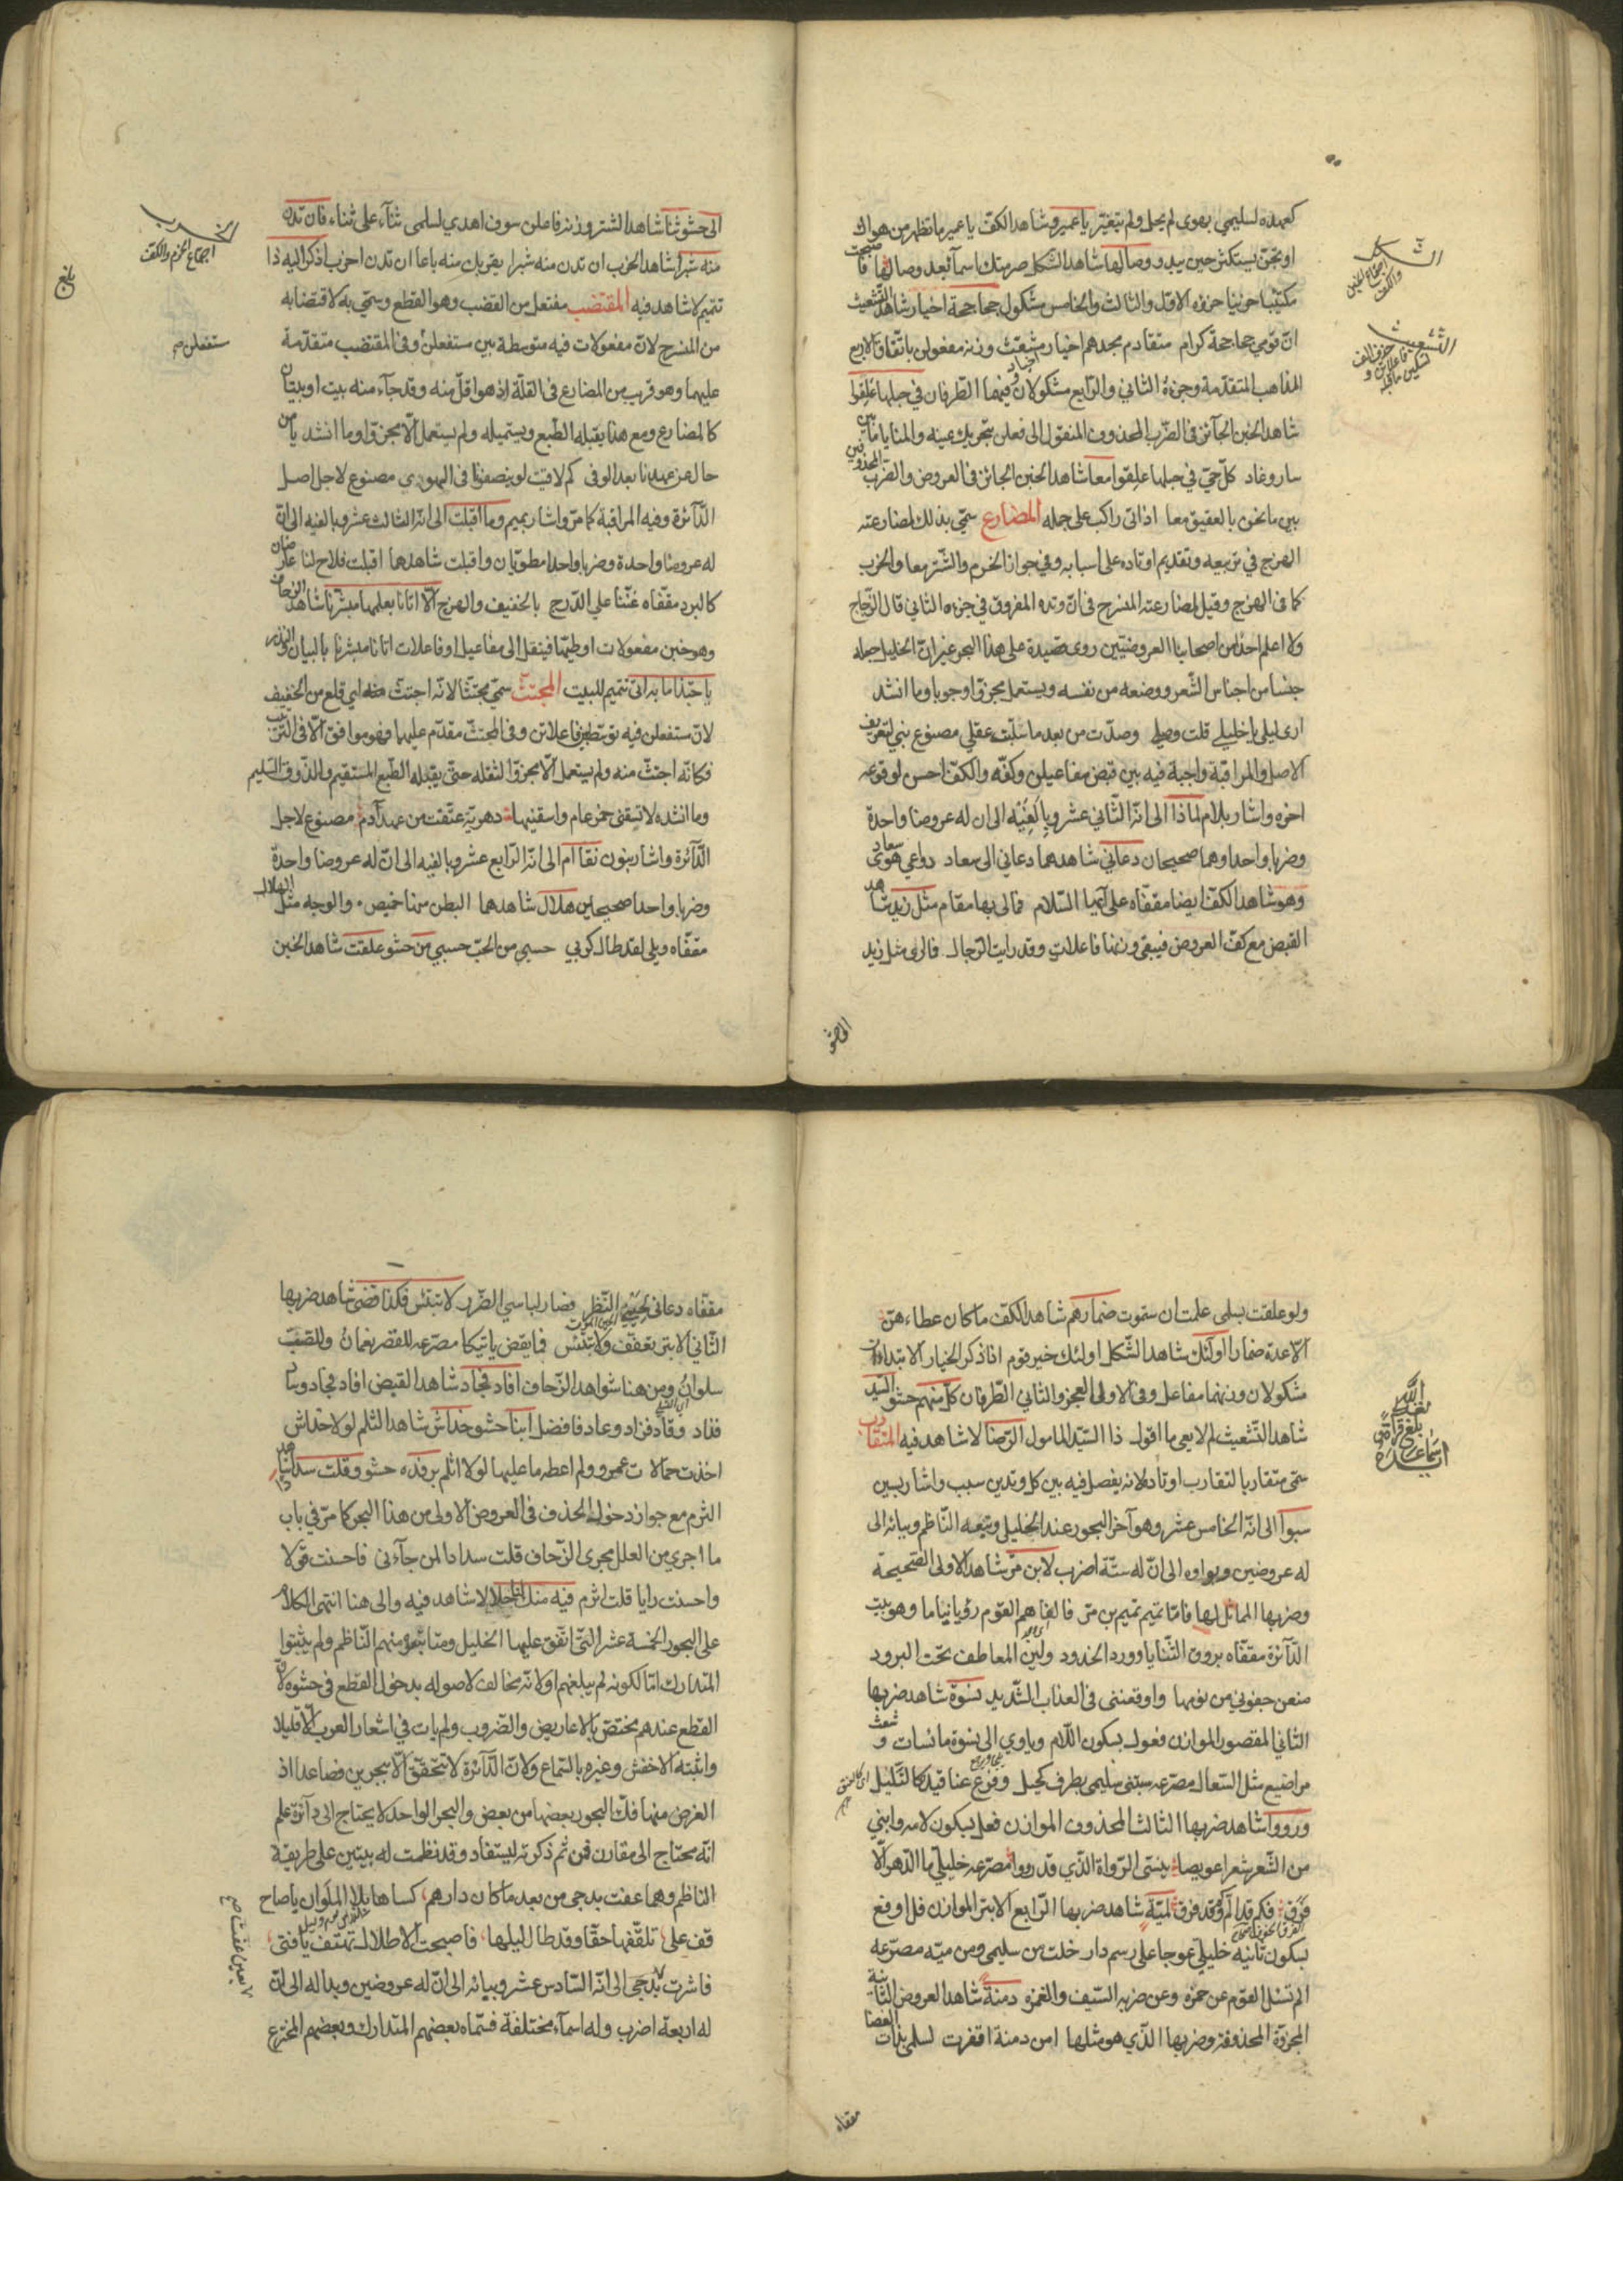 كعهده لسليمى بهوى لم يحل ولم يتغير يا عمير وشاهد الكف يا عمير ما تظهر من هواك
او تجن يستكثر حين يبدو وصالها شاهد الشكل صرمتك اسماء بعد وصالها فا
صبحت
مكتئبا حزينا جزؤه الاول والثالث والخامس مشكول جحاجحة اخيار شاهد التشعيث
ان قومي جحاجحة كرام متقادم مجدهم اخيار مشعث وزنه مفعولن باتفاق الاربع
المذاهب المتقدمة وجزءه الثاني والرابع مشكولان وفيهما الطرفان في حبلها علقوا
شاهد الخبن الجائز في الضرب المحذوف المنقول الى فعلن بتحريك عينه والمنايا ما بين
سار وغاد كل حي في حبلها علقوا معا شاهد الخبن الجائز في العروض والضرب
المحذوفين
بين ما نحن بالعقيق معا اذ اتى راكب على جمله المضارع سمي بذلك لمضارعته
الهزج في تربيعه وتقديم اوتاده على اسبابه وفي جواز الخرم والشتر معا والخرب
كما في الهزج وقيل لمضارعته المنسرح في ان وتده المفروق في جزءه الثاني قال الزجاج
ولا اعلم احدا من اصحابنا العروضيين روى قصيدة على هذا البحر غير ان الخليل جعله
جنسا من اجناس الشعر ووضعه من نفسه ويستعمل مجزوا وجوبا وما انشد
ارى ليلى يا خليلي قلت وصلي وصدت من بعد ما سلبت عقلي مصنوع بني لتعريف
الاصل والمراقبة واجبة فيه بين قبض مفاعيلن وكفه والكف احسن لوقوعه
اخره واشار بلام لماذا الى انه الثاني عشر وبالفيه الى ان له عروضا واحدة
وضربا واحدا وهما صحيحان دعاني شاهدهما دعاني الى سعاد دواعي هوى
سعاد
وهو شاهد الكف ايضا مقفاه على آيها السلام فما لي بها مقام مثل زيد شاهد
القبض مع كف العروض فيبقى وزنها فاعلات وقد رايت الرجال فما ارى مثل زيد
الشكل
اجتماع الخبن
والكف
التشعيث
حذف الف
فاعلاتن و
تسكين ما قبله
الى حشو
الى حشو ثنا شاهد الشتر وزنه فاعلن سوف اهدي لسلمى ثناء على ثناء فان تدن
منه شبرا شاهد الخرب ان تدن منه شبرا يقربك منه باعا ان تدن اخرب اذكر اليه ذا
تتميم لا شاهد فيه المقتضب مفتعل من القضب وهو القطع وسمي به لاقتضابه
من المنسرح لان مفعولات فيه متوسطة بين مستفعلن وفي المقتضب متقدمة
عليهما وهو قريب من المضارع في القلة اذ هو اقل منه وقد جاء منه بيت او بيتان
كالمضارع ومع هذا يقبله الطبع ويستميله ولم يستعمل الا مجزوا وما انشد يا من
حال عن عهدنا بعد الوفى كم لاقيت لو ينصفنا في الهوى مصنوع لاجل اصل
الدائرة وفيه المراقبة كما مر واشار بميم وما اقبلت الى انه الثالث عشر وبالفيه الى ان
له عروضا واحدة وضربا واحدا مطويان واقبلت شاهدها اقبلت فلاح لنا عارضان
كالبرد مقفاه غننا على الدرج بالخفيف والهزج الا اتانا بعلمها مبشرنا شاهد الزحاف
وهو خبن مفعولات او طيها فينقل الى مفاعيل او فاعلات اتانا مبشرنا بالبيان والنذر
يا حبذا ما به اتى تتميم للبيت المجتث سمي مجتثا لانه اجتث منه اي قلع من الخفيف
لان مستفعلن فيه توسط بين فاعلاتن وفي المجتث مقدم عليهما فهو موافق الا في الترتيب
فكانه اجتث منه ولم يستعمل الا مجزوا لثقله حتى يقبله الطبع المستقيم والذوق السليم
وما انشده لا تسقني خمر عام واسقنيها دهرية عتقت من عهد آدم مصنوع لاجل
الدائرة واشار بنون نقا ام الى انه الرابع عشر وبالفيه الى ان له عروضا واحدة
وضربا واحدا صحيحين هلال شاهدهما البطن منها خميص والوجه مثل الهلال
مقفاه ويلي لقد طال كربي حسبي من الحب حسبي من حشو علقت شاهد الخبن
الخرب
اجتماع الخرم والكف
مستفعلن صح
بلغ
ولو علقت بسلمى علمت ان ستموت ضمارهم شاهد الكف ما كان عطاءهن
الا عدة ضمارا اولئك شاهد الشكل اولئك خير قوم اذا ذكر الخيار الابتداءان
مشكولان وزنهما مفاعل وفي الاولى العجز والثاني الطرفان كل منهم حشو السيد
شاهد التشعيث لم لا يعي ما اقول ذا السيد المامول الرضا لا شاهد فيه المتقارب
سمي متقاربا لتقارب اوتاده لانه يفصل فيه بين كل وتدين سبب واشار بسين
سبوا الى انه الخامس عشر وهو آخر البحور عند الخليل وتبعه الناظم وبيائه الى
له عروضين وبواوه الى ان له ستة اضرب لابن مر شاهد الاولى الصحيحة
وضربها المماثل لها فاما تميم تميم بن مر فالفاهم القوم رؤبى نياما وهو بيت
الدائرة مقفاه بروق الثنايا وورد الخدود ولين المعاطف تحت البرود
منعن جفوني من نومها واوقعنني في العذاب الشديد نسوة شاهد ضربها
الثاني المقصور الموازن فعول بسكون اللام وياوي الى نسوة بائسات وشعث
مراضيع مثل السعالى مصرعه سبتني سليمى بطرف كحيل وفرع عناقيد كالليل
ورووا شاهد ضربها الثالث المحذوف الموازن فعل بسكون لامه وابني
من الشعر شعرا عويصا ينسي الرواة الذي قد رووا مصرعه خليلي ما الدهر الا
فرق فكم قد الم وقد فرق لمية شاهد ضربها الرابع الابتر الموازن فل او فع
بسكون ثانيه خليلي عوجا على رسم دار خلت من سليمى ومن ميه مصرعه
الم تسل القوم عن حمزه وعن ضربه السيف والغمزه دمنة شاهد العروض الثانية
المجزوة المحذوفة وضربها الذي هو مثلها امن دمنة اقفرت لسلمى بذات الغضا
بلغ قراءة
مقفاه
مقفاه دعاني لحيني النظر فصار لباسي الضرر لا تبتئس فكذا قضى شاهد ضربها
الثاني الابتر تعفف ولا تبتئس فما يقض ياتيكا مصرعه للقصر نغمان وللصب
سلوان ومن هنا شواهد الزحاف افاد فجاد شاهد القبض افاد فجاد وساد
فزاد وقاد فزاد وعاد فافضل ابنا حشو خداش شاهد الثلم لولا خداش
اخذت جمالات عمرو ولم اعطه ما عليها لولا اثلم برفده حشو وقلت سدادا شاهد
الثرم مع جواز دخول الحذف في العروض الاولى من هذا البحر كما مر في باب
ما اجري من العلل مجرى الزحاف قلت سدادا لمن جاءني فاحسنت قولا
واحسنت رايا قلت اثرم فيه منك لنا حلا لا شاهد فيه والى هنا انتهى الكلام
على البحور الخمسة عشر التي اتفق عليها الخليل ومتابعوه منهم الناظم ولم يثبتوا
المتدارك اما لكونه لم يبلغهم او لانه مخالف لاصوله بدخول القطع في حشوه لان
القطع عندهم مختص بالاعاريض والضروب ولم يات في اشعار العرب الا قليلا
واثبته الاخفش وغيره بالسماع ولان الدائرة لا تتحقق الا ببحرين فصاعدا اذ
الغرض منها فك البحور بعضها من بعض والبحر الواحد لا يحتاج الى دائرة علم
انه محتاج الى مقارن فمن ثم ذكرته ليستفاد وقد نظمت له بيتين على طريقة
الناظم وهما عفت بدجى من بعد ما كان دارهم كساها بلا الملوان يا صاح
قف على تلقفها حقا وقد طال ليلها فاصبحت الاطلال تهتف يا فتى
فاشرت بدجى الى انه السادس عشر وبيائه الى ان له عروضين وبداله الى ان
له اربعة اضرب وله اسماء مختلفة فسماه بعضهم المتدارك وبعضهم المخترع